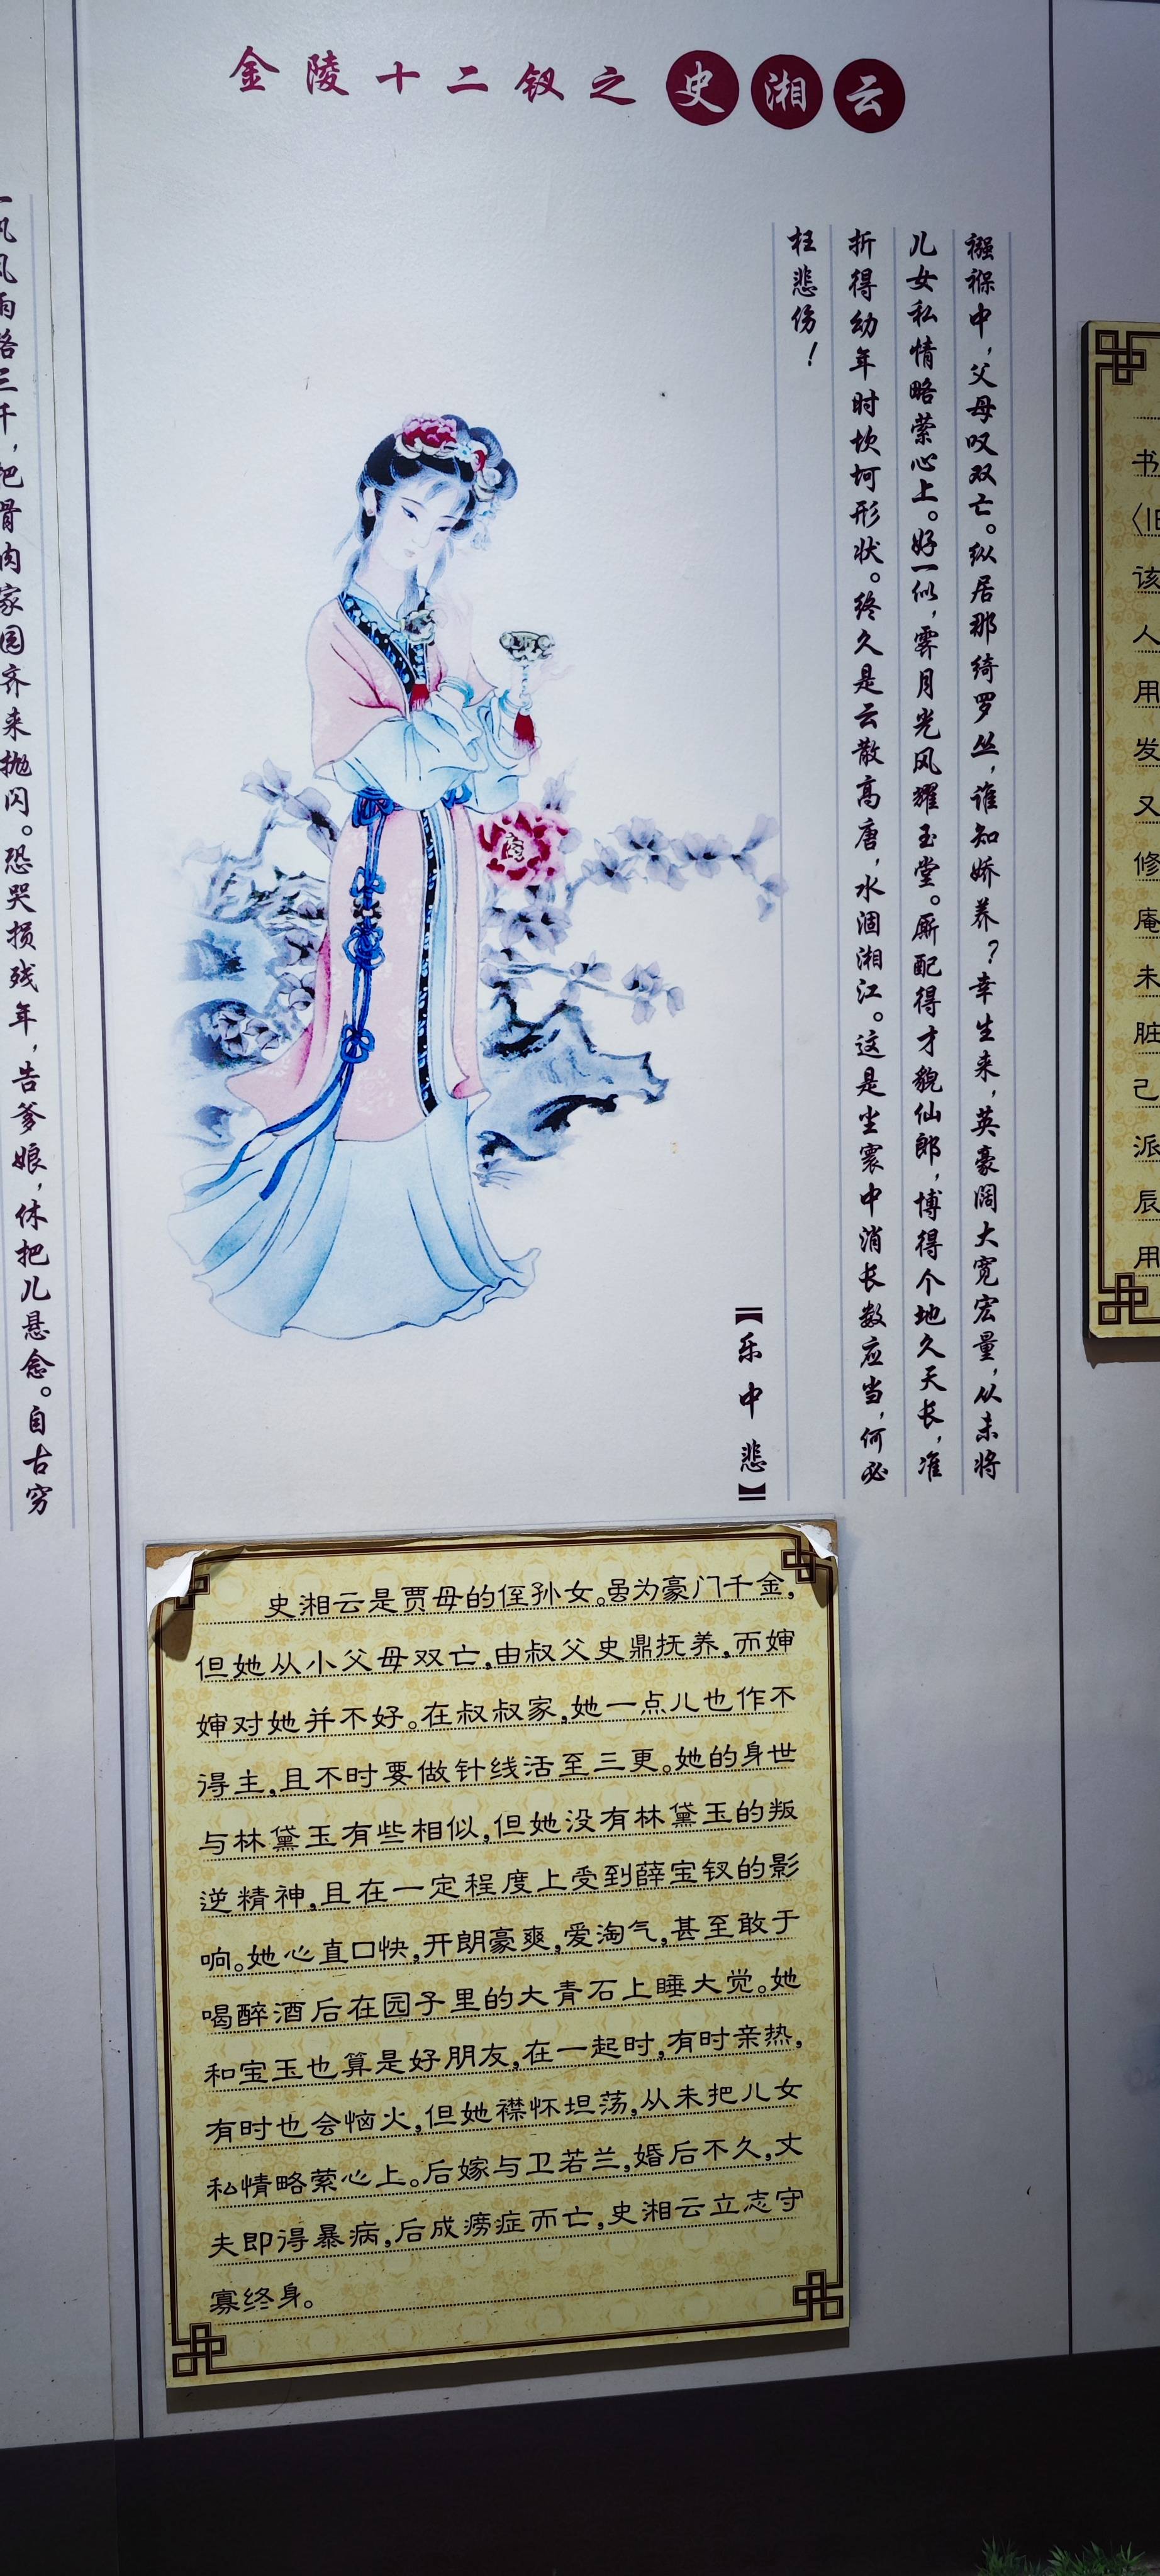 金陵十二钗之史湘云
襁褓中，父母叹双亡。纵居那绮罗丛，谁知娇养？幸生来，英豪阔大宽宏量，从未将
儿女私情略萦心上。好一似，霁月光风耀玉堂。厮配得才貌仙郎，博得个地久天长，准
折得幼年时坎坷形状。终久是云散高唐，水涸湘江。这是尘寰中消长数应当，何必
枉悲伤！
【乐中悲】
史湘云是贾母的侄孙女。虽为豪门千金，
但她从小父母双亡，由叔父史鼎抚养，而婶
婶对她并不好。在叔叔家，她一点儿也作不
得主，且不时要做针线活至三更。她的身世
与林黛玉有些相似，但她没有林黛玉的叛
逆精神，且在一定程度上受到薛宝钗的影
响。她心直口快，开朗豪爽，爱淘气，甚至敢于
喝醉酒后在园子里的大青石上睡大觉。她
和宝玉也算是好朋友，在一起时，有时亲热，
有时也会恼火，但她襟怀坦荡，从未把儿女
私情略萦心上。后嫁与卫若兰，婚后不久，丈
夫即得暴病，后成痨症而亡，史湘云立志守
寡终身。
风雨路三千，把骨肉家园齐来抛闪。恐哭损残年，告爹娘，休把儿悬念。自古穷
书
该
人
用
发
又
修
庵
未
脏
己
派
辰
用